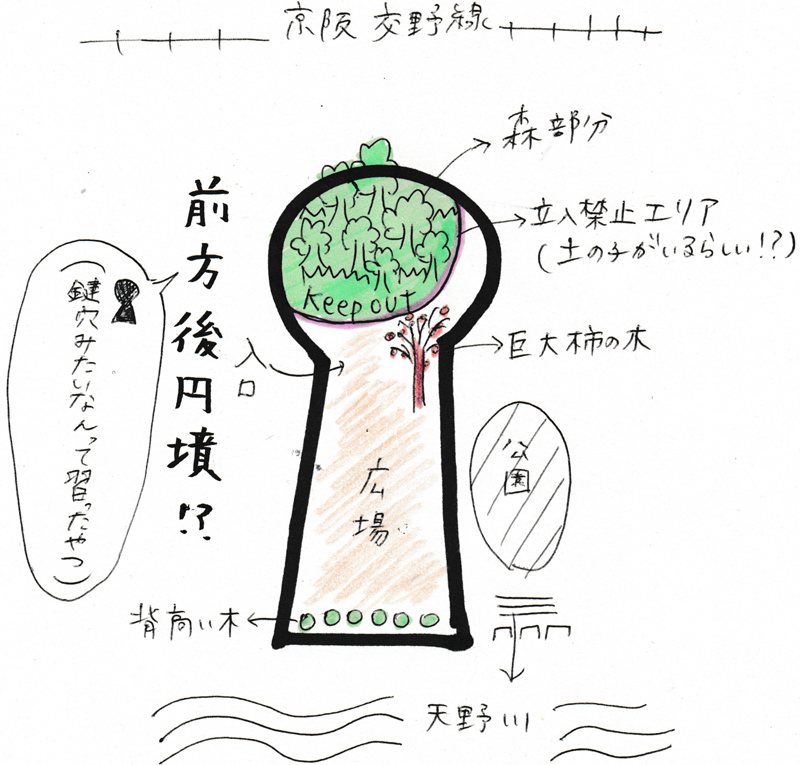 京阪 交野線
森部分
立入禁止エリア
(土の子がいるらしい!?)
Keep out
前方後円墳!?
(鍵穴みたいなんって習ったやつ)
入口
巨大柿の木
公園
広場
背高い木
天野川